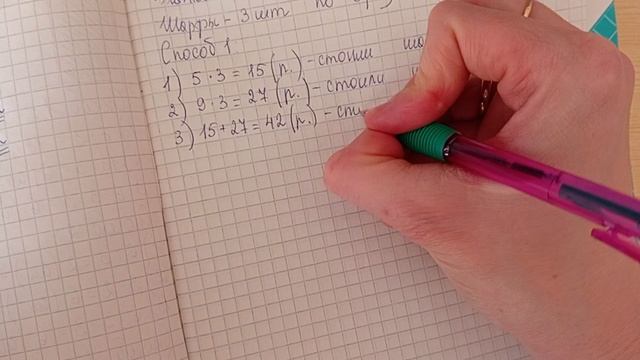 Шарфы - 3 шт по
Способ 1
1) 5 · 3 = 15 (р.) - стоили
2) 9 · 3 = 27 (р.) - стоили
3) 15 + 27 = 42 (р.) -